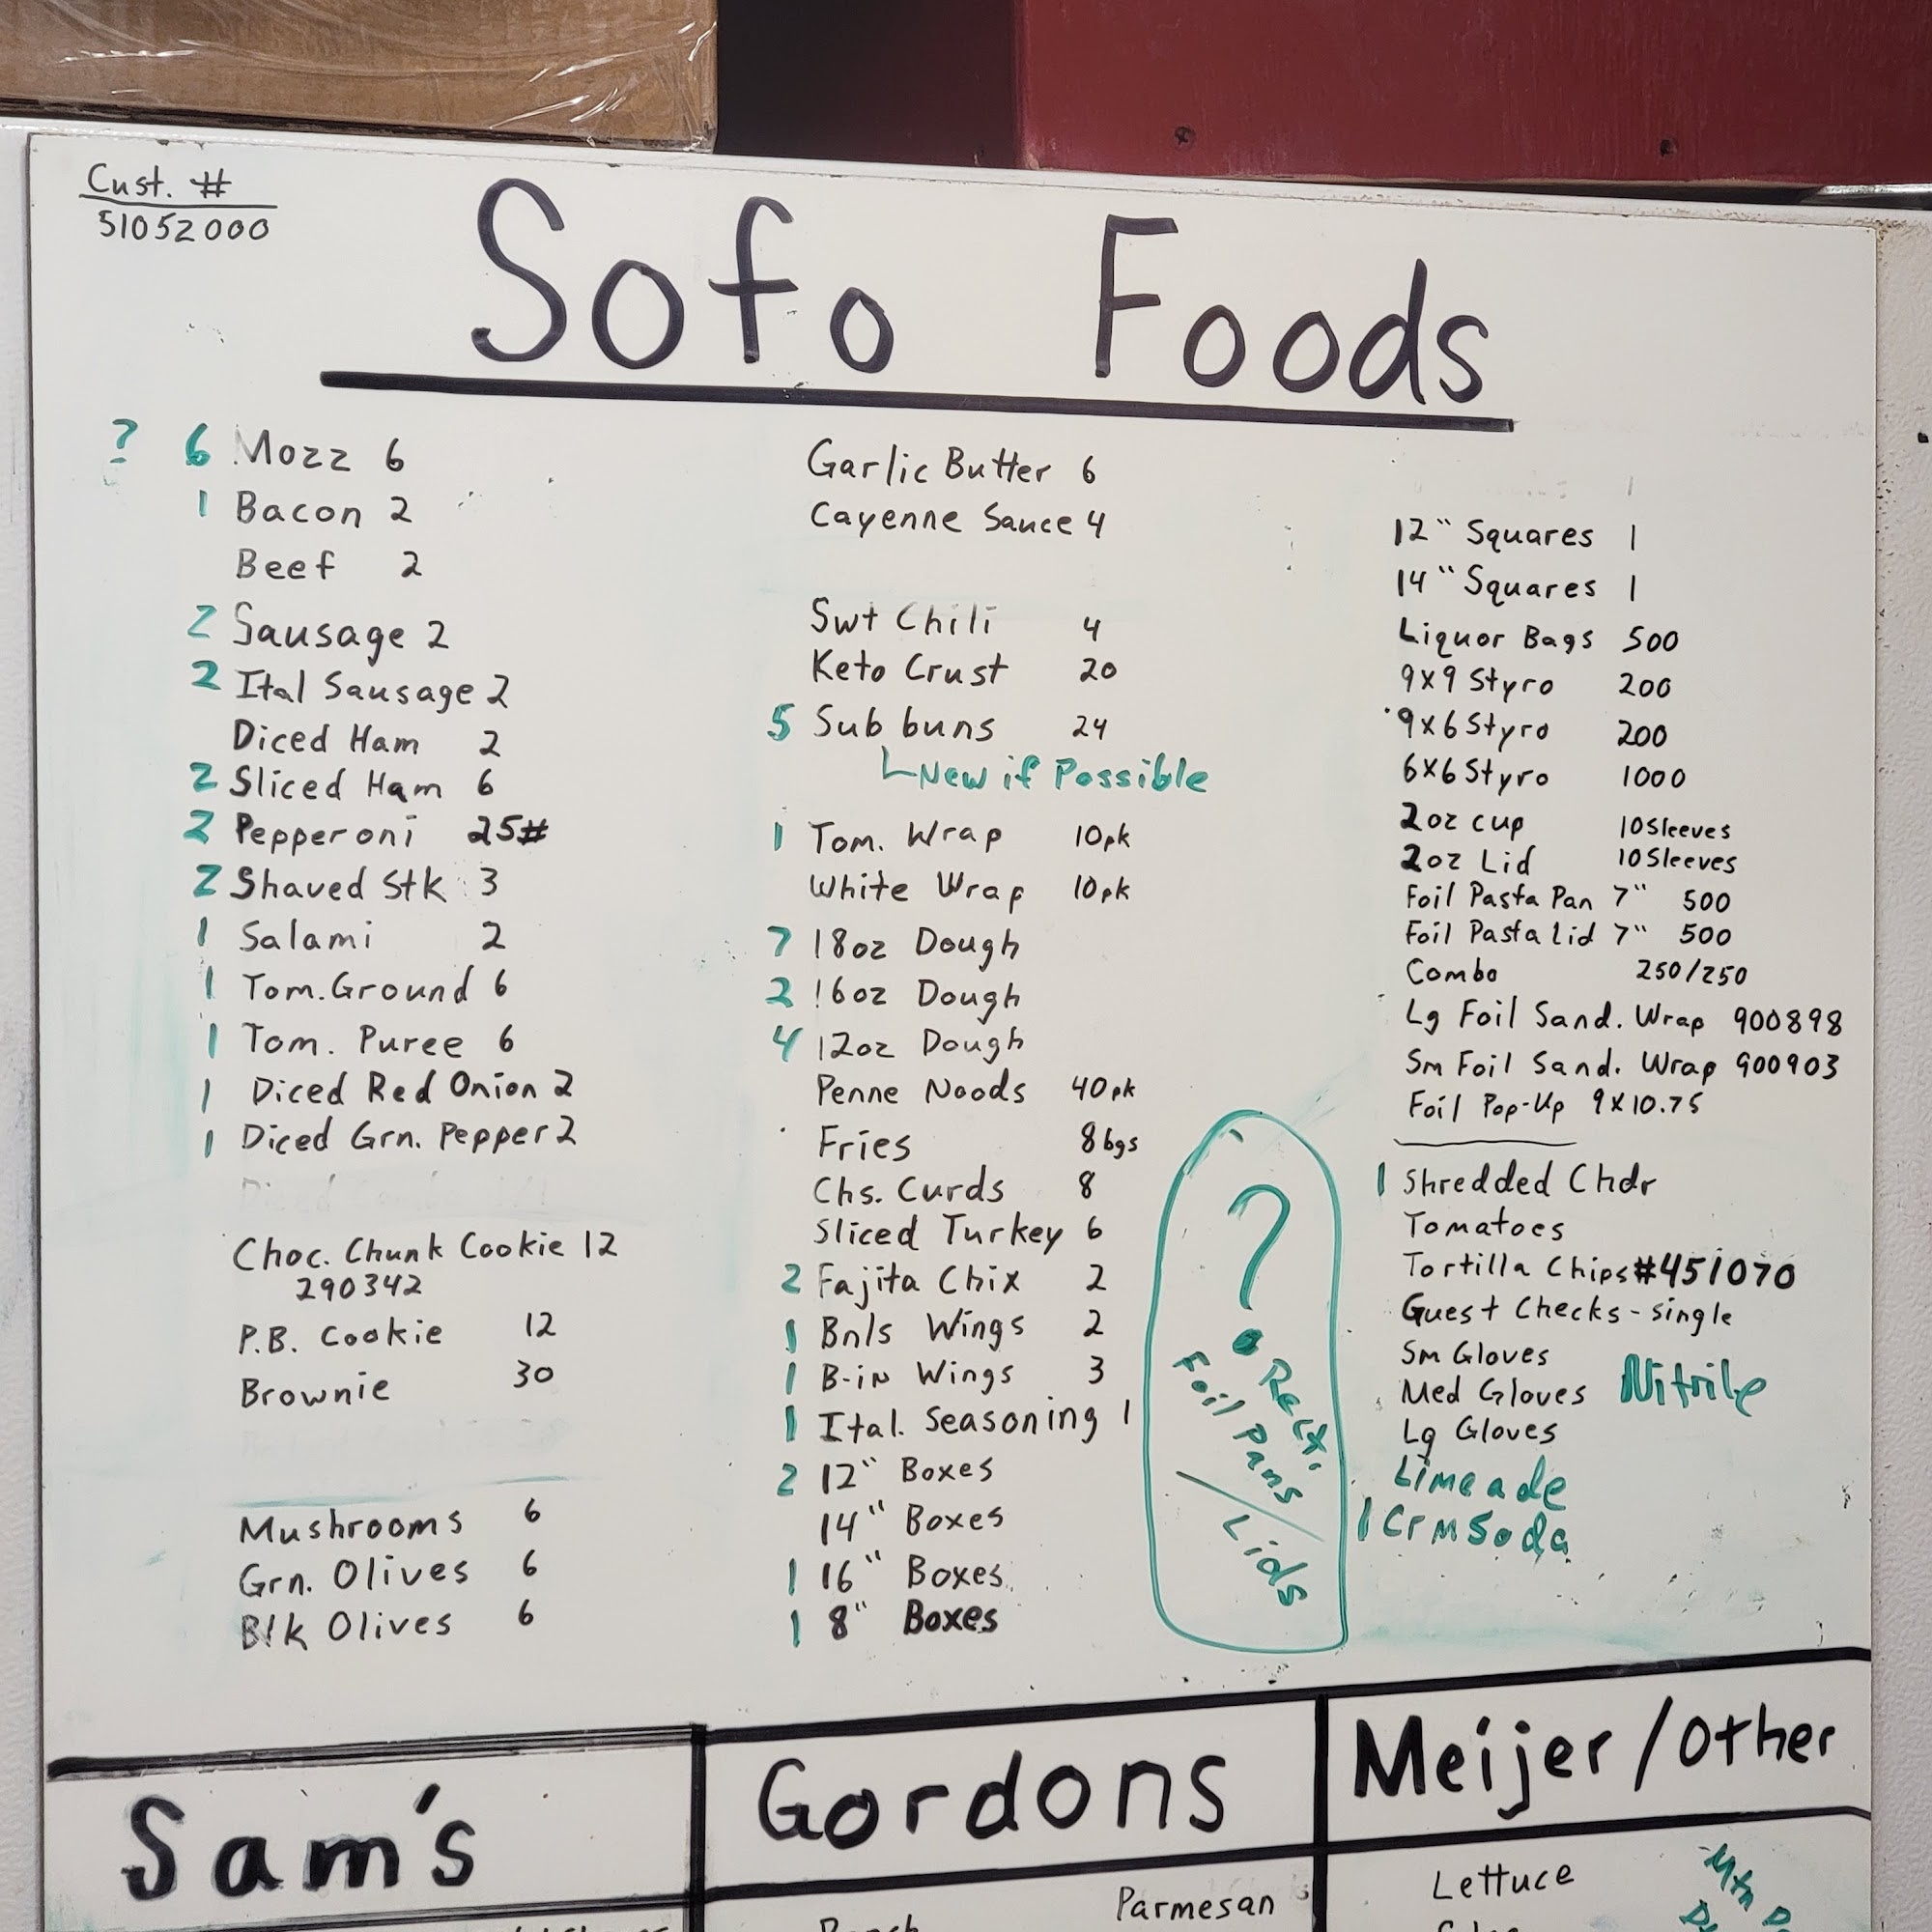 Cust. #
51052000
Sofo Foods
? 6 Mozz 6
1 Bacon 2
Beef 2
2 Sausage 2
2 Ital Sausage 2
Diced Ham 2
2 Sliced Ham 6
2 Pepperoni 25#
2 Shaved Stk 3
1 Salami 2
1 Tom. Ground 6
1 Tom. Puree 6
1 Diced Red Onion 2
1 Diced Grn. Pepper 2
Choc. Chunk Cookie 12
290342
P.B. Cookie 12
Brownie 30
Mushrooms 6
Grn. Olives 6
Blk Olives 6
Garlic Butter 6
Cayenne Sauce 4
Swt Chili 4
Keto Crust 20
5 Sub buns 24
New if Possible
1 Tom. Wrap 10pk
White Wrap 10pk
7 18oz Dough
2 16oz Dough
4 12oz Dough
Penne Noods 40pk
Fries 8bgs
Chs. Curds 8
Sliced Turkey 6
2 Fajita Chix 2
1 Bnls Wings 2
1 B-in Wings 3
1 Ital. Seasoning 1
2 12" Boxes
14" Boxes
1 16" Boxes
1 8" Boxes
?
Rect.
Foil Pans
/ Lids
12" Squares 1
14" Squares 1
Liquor Bags 500
9x9 Styro 200
9x6 Styro 200
6x6 Styro 1000
2oz cup 10 Sleeves
2oz Lid 10 Sleeves
Foil Pasta Pan 7" 500
Foil Pasta Lid 7" 500
Combo 250/250
Lg Foil Sand. Wrap 900898
Sm Foil Sand. Wrap 900903
Foil Pop-Up 9x10.75
1 Shredded Chdr
Tomatoes
Tortilla Chips #451070
Guest Checks - single
Sm Gloves
Med Gloves Nitrile
Lg Gloves
Limeade
1 Crm Soda
Sam's
Gordons
Parmesan
Meijer/Other
Lettuce
Mtn